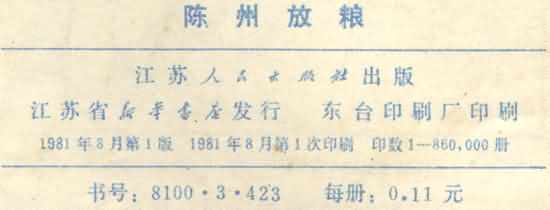 陈州放粮
江苏人民出版社出版
江苏省新华书店发行 东台印刷厂印刷
1981年8月第1版 1981年8月第1次印刷 印数1—860,000册
书号：8100·3·423 每册：0.11元